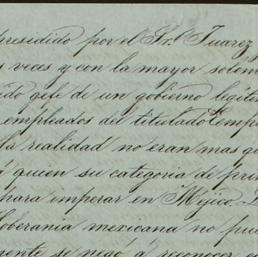 presidido por el Sr. Juarez
s veces y con la mayor solem
ido gefe de un gobierno legíti
empleados del titulado Ymp
la realidad no eran mas q
á quien su categoria de pri
para imperar en Méjico.
soberania mexicana no pu
mente se negó a reconocer